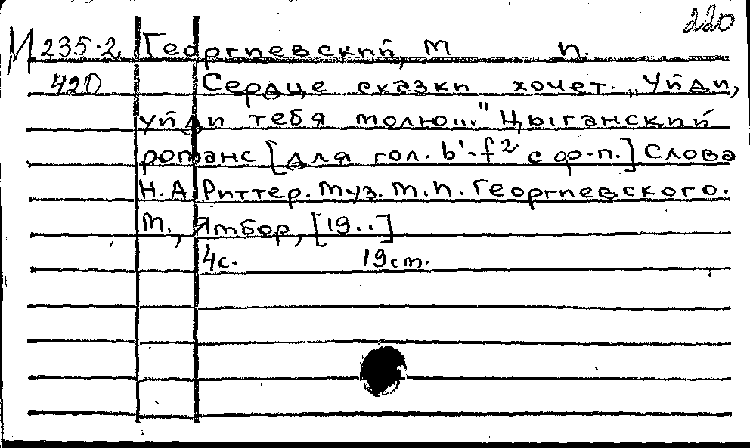 220
М 235-2 Георгиевский, М П.
420 Сердце сказки хочет. „Уйди,
уйди тебя молю..." Цыганский
романс [для гол. b'-f² с ф-п.] Слова
Н.А. Риттер. Муз. М.П. Георгиевского.
М., Ямбор, [19..]
4с. 19см.